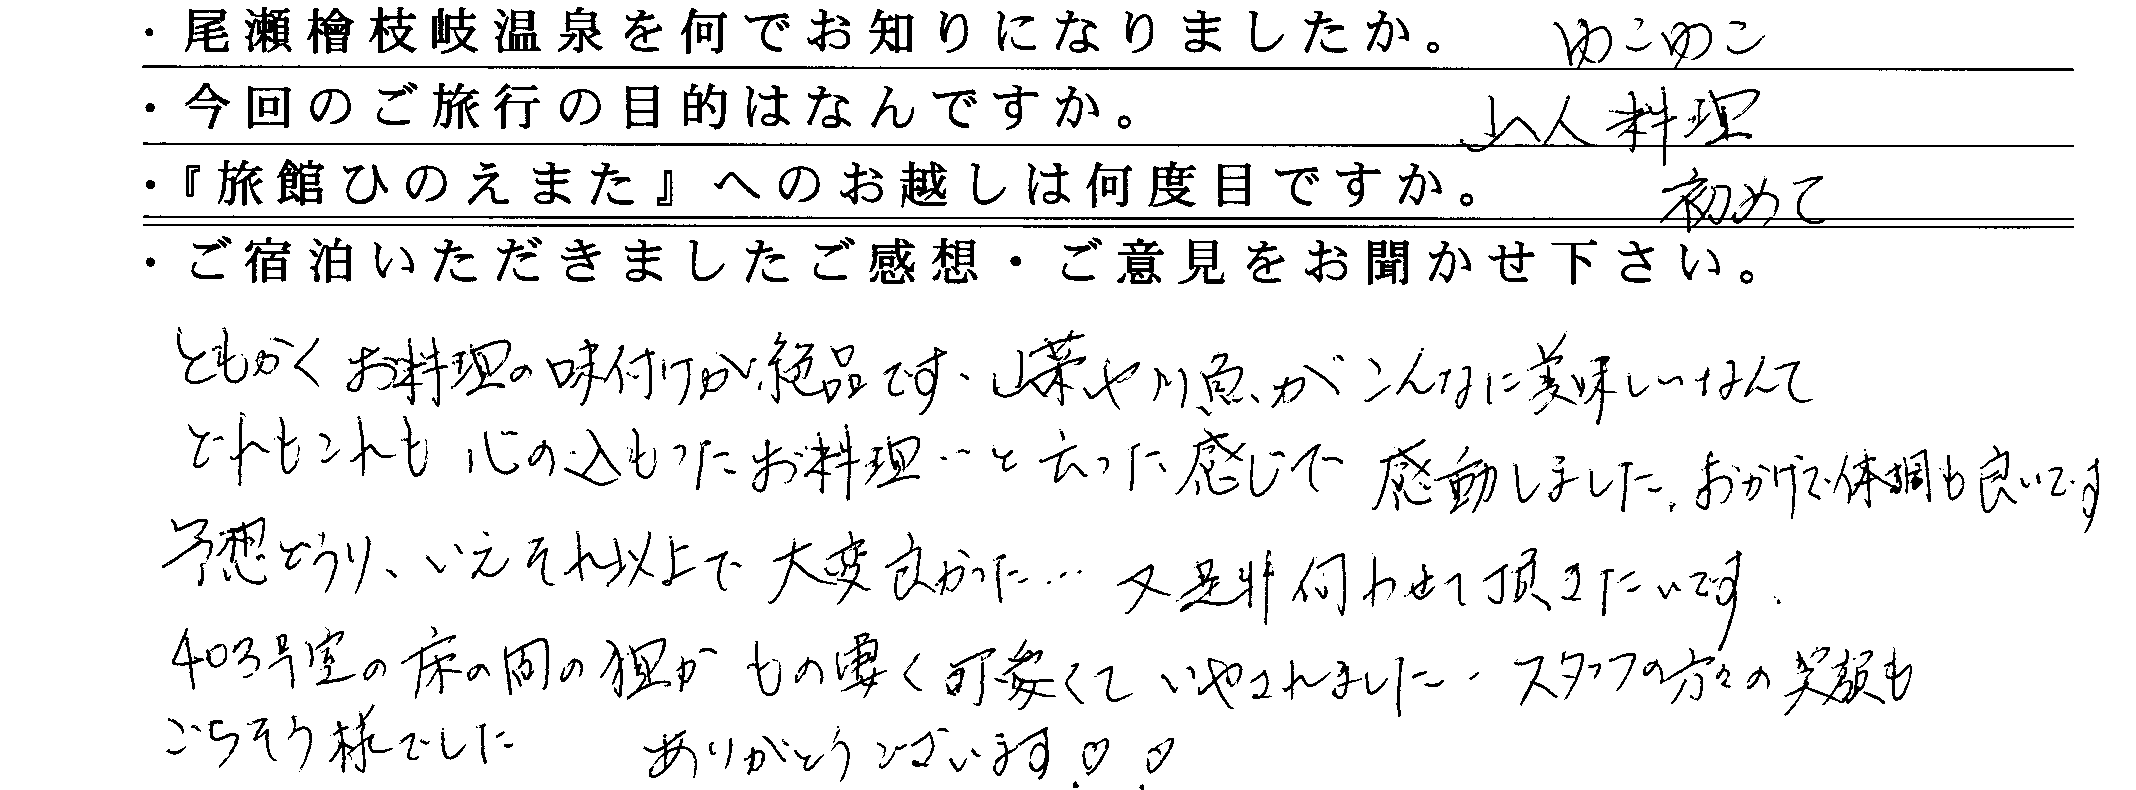 ・尾瀬檜枝岐温泉を何でお知りになりましたか。 ゆこゆこ
・今回のご旅行の目的はなんですか。 山人料理
・『旅館ひのえまた』へのお越しは何度目ですか。 初めて
・ご宿泊いただきましたご感想・ご意見をお聞かせ下さい。
ともかくお料理の味付けが絶品です、山菜や川魚がこんなに美味しいなんて
どれもこれも心の込もったお料理…と云った感じで感動しました。おかげで体調も良いです
予想どうり、いえそれ以上で大変良かった…又是非伺わせて頂きたいです。
403号室の床の間の狸がもの凄く可愛くていやされました。スタッフの方々の笑顔も
ごちそう様でした ありがとうございます!♡!♡